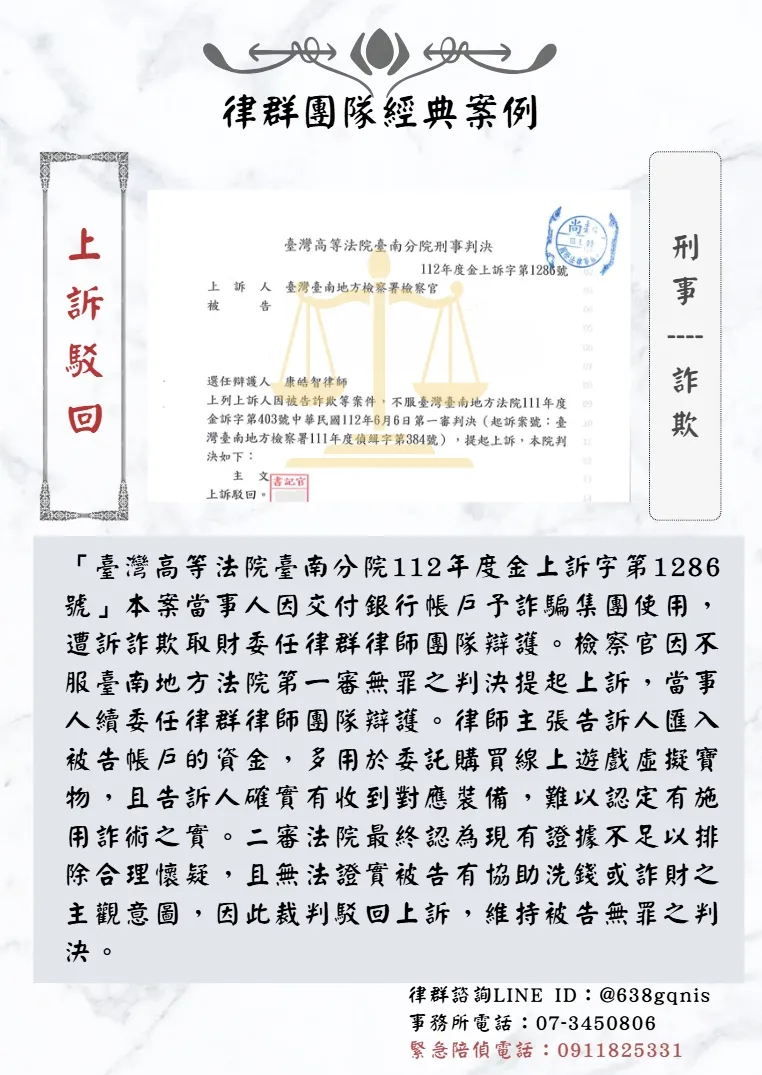 律群團隊經典案例
上訴駁回
臺灣高等法院臺南分院刑事判決
112年度金上訴字第1286號
上訴人 臺灣臺南地方檢察署檢察官
被告
選任辯護人 康皓智律師
上列上訴人因被告詐欺等案件,不服臺灣臺南地方法院111年度
金訴字第403號中華民國112年6月6日第一審判決(起訴案號:臺
灣臺南地方檢察署111年度偵緝字第384號),提起上訴,本院判
決如下:
主文
書記官
上訴駁回。
刑事----詐欺
「臺灣高等法院臺南分院112年度金上訴字第1286
號」本案當事人因交付銀行帳戶予詐騙集團使用,
遭訴詐欺取財委任律群律師團隊辯護。檢察官因不
服臺南地方法院第一審無罪之判決提起上訴,當事
人續委任律群律師團隊辯護。律師主張告訴人匯入
被告帳戶的資金,多用於委託購買線上遊戲虛擬寶
物,且告訴人確實有收到對應裝備,難以認定有施
用詐術之實。二審法院最終認為現有證據不足以排
除合理懷疑,且無法證實被告有協助洗錢或詐財之
主觀意圖,因此裁判駁回上訴,維持被告無罪之判
決。
律群諮詢LINE ID:@638gqnis
事務所電話:07-3450806
緊急陪偵電話:0911825331